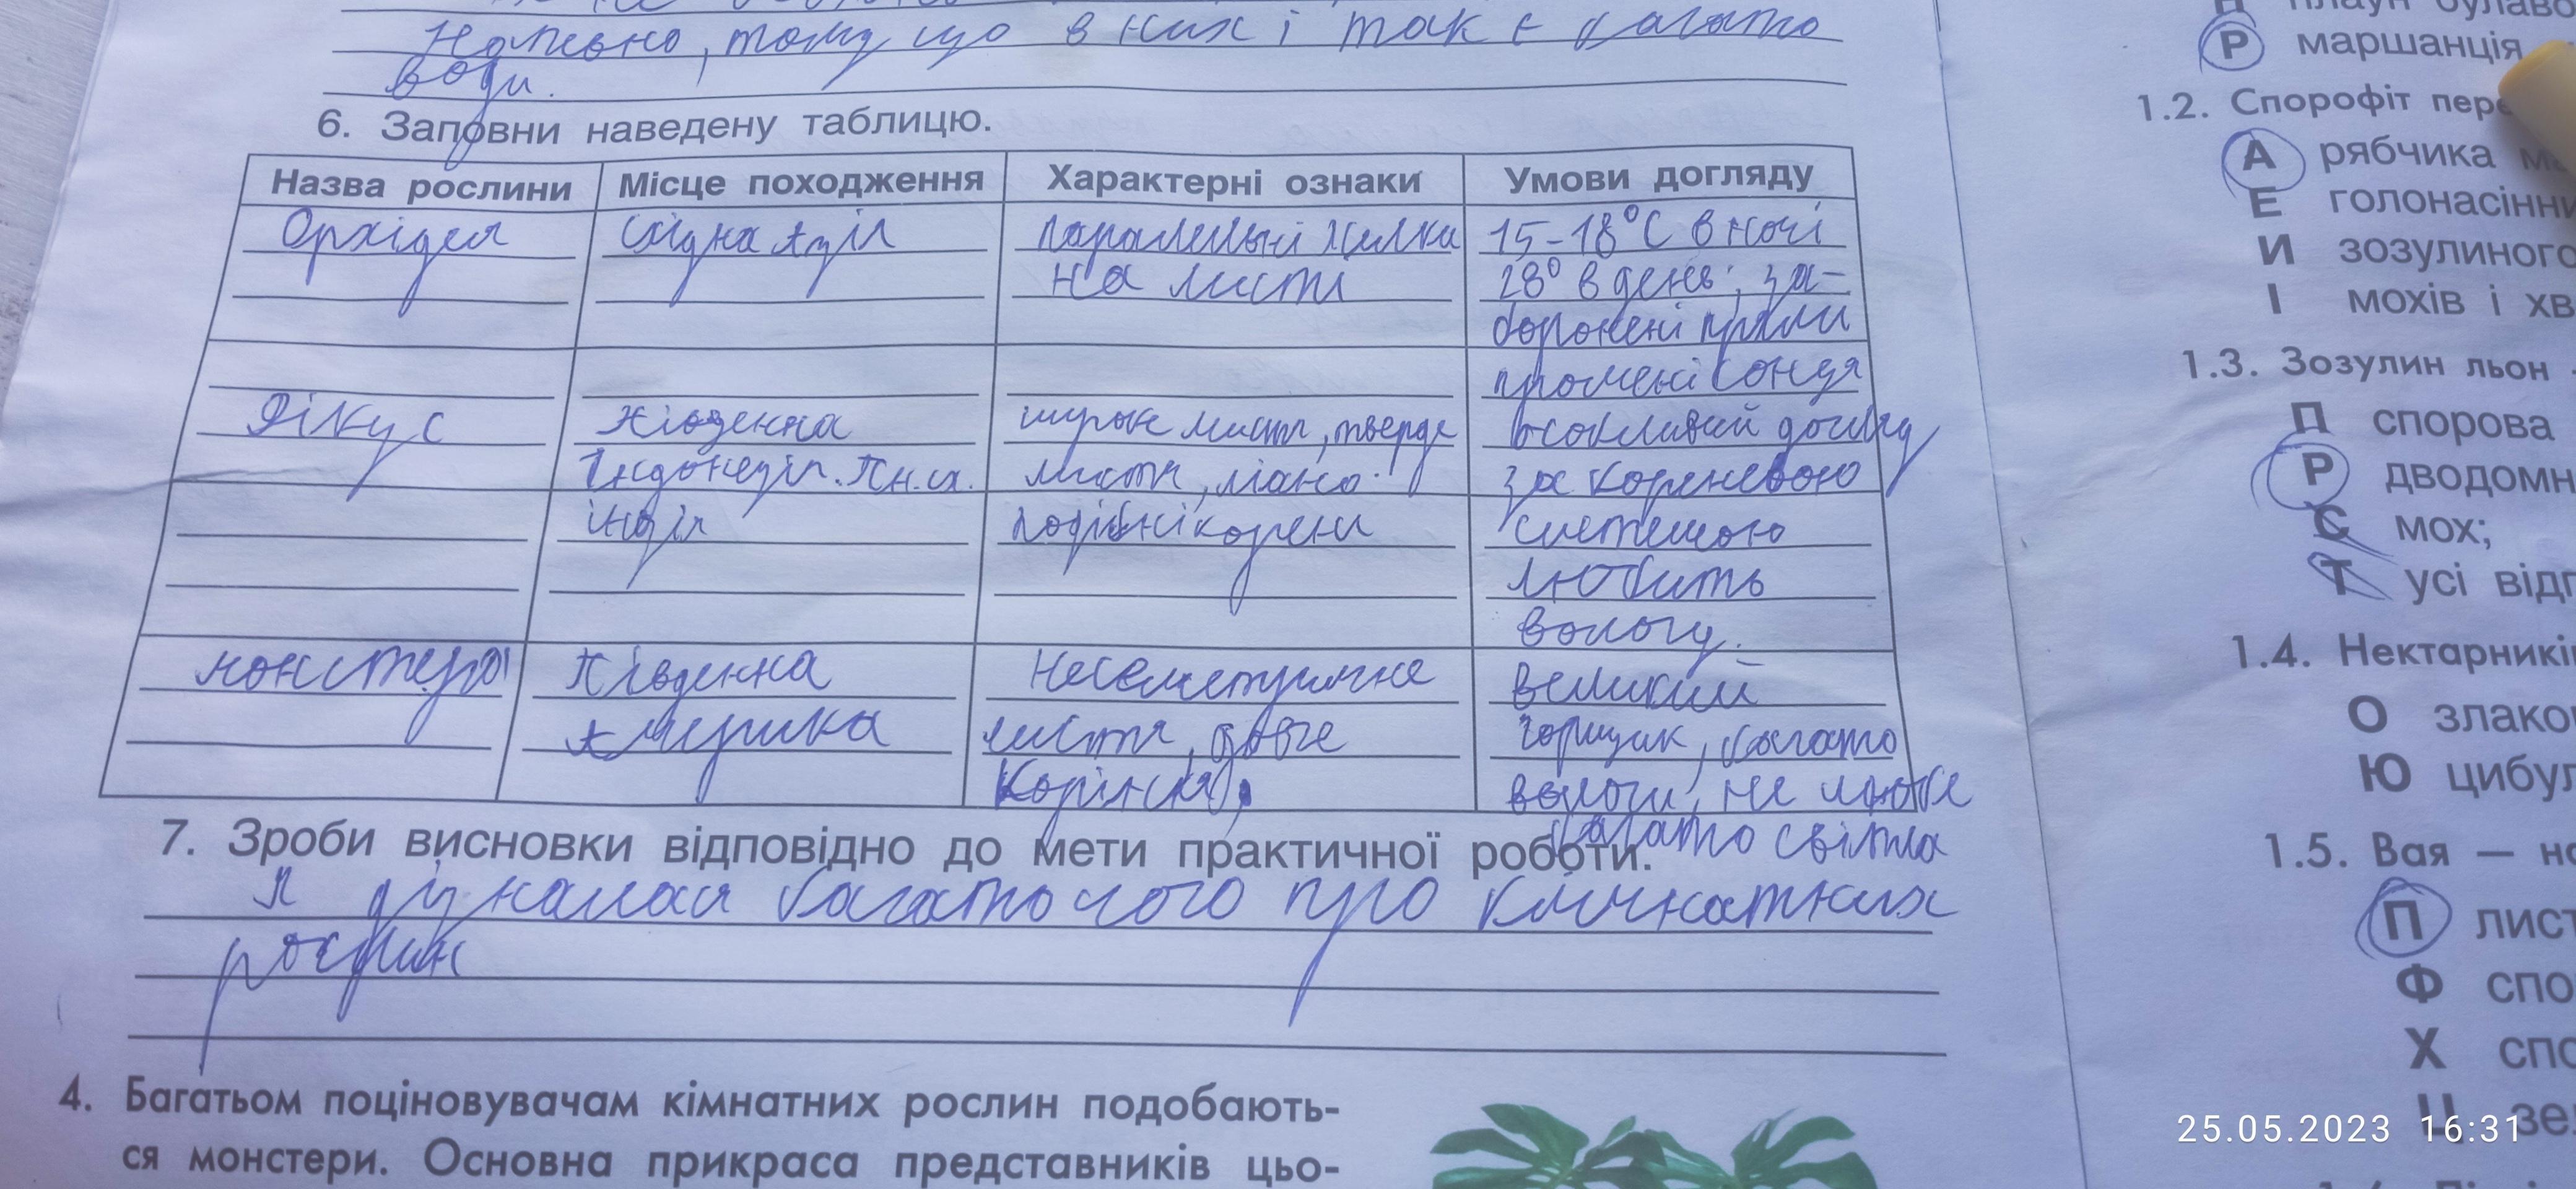 напевно, тому що в них і так є багато
води.
6. Заповни наведену таблицю.
Назва рослини Місце походження Характерні ознаки Умови догляду
Орхідея Східна Азія паралельні жилки 15-18°C вночі
на листі 28° в день; за-
боронені прямі
промені сонця
Фікус Південна широке листя, тверде особливий догляд
Індонезія. Пн.сх. листя, ліано- за кореневою
індія подібні корені системою
любить
вологу.
монстера Південна Несеметричне великий
Америка листя, довге горщик, багато
Коріння, вологи, не любе
багато світла
7. Зроби висновки відповідно до мети практичної роботи.
Я дізналася багато чого про кімнатних
рослин
4. Багатьом поціновувачам кімнатних рослин подобають-
ся монстери. Основна прикраса представників цьо-
плаун булаво
Р маршанція
1.2. Спорофіт пере
А рябчика
Е голонасінни
И зозулиного
І мохів і хв
1.3. Зозулин льон
П спорова
Р дводомн
С мох;
Т усі відп
1.4. Нектарникі
О злако
Ю цибул
1.5. Вая — но
П лист
Ф спо
Х спо
Ц зе
25.05.2023 16:31